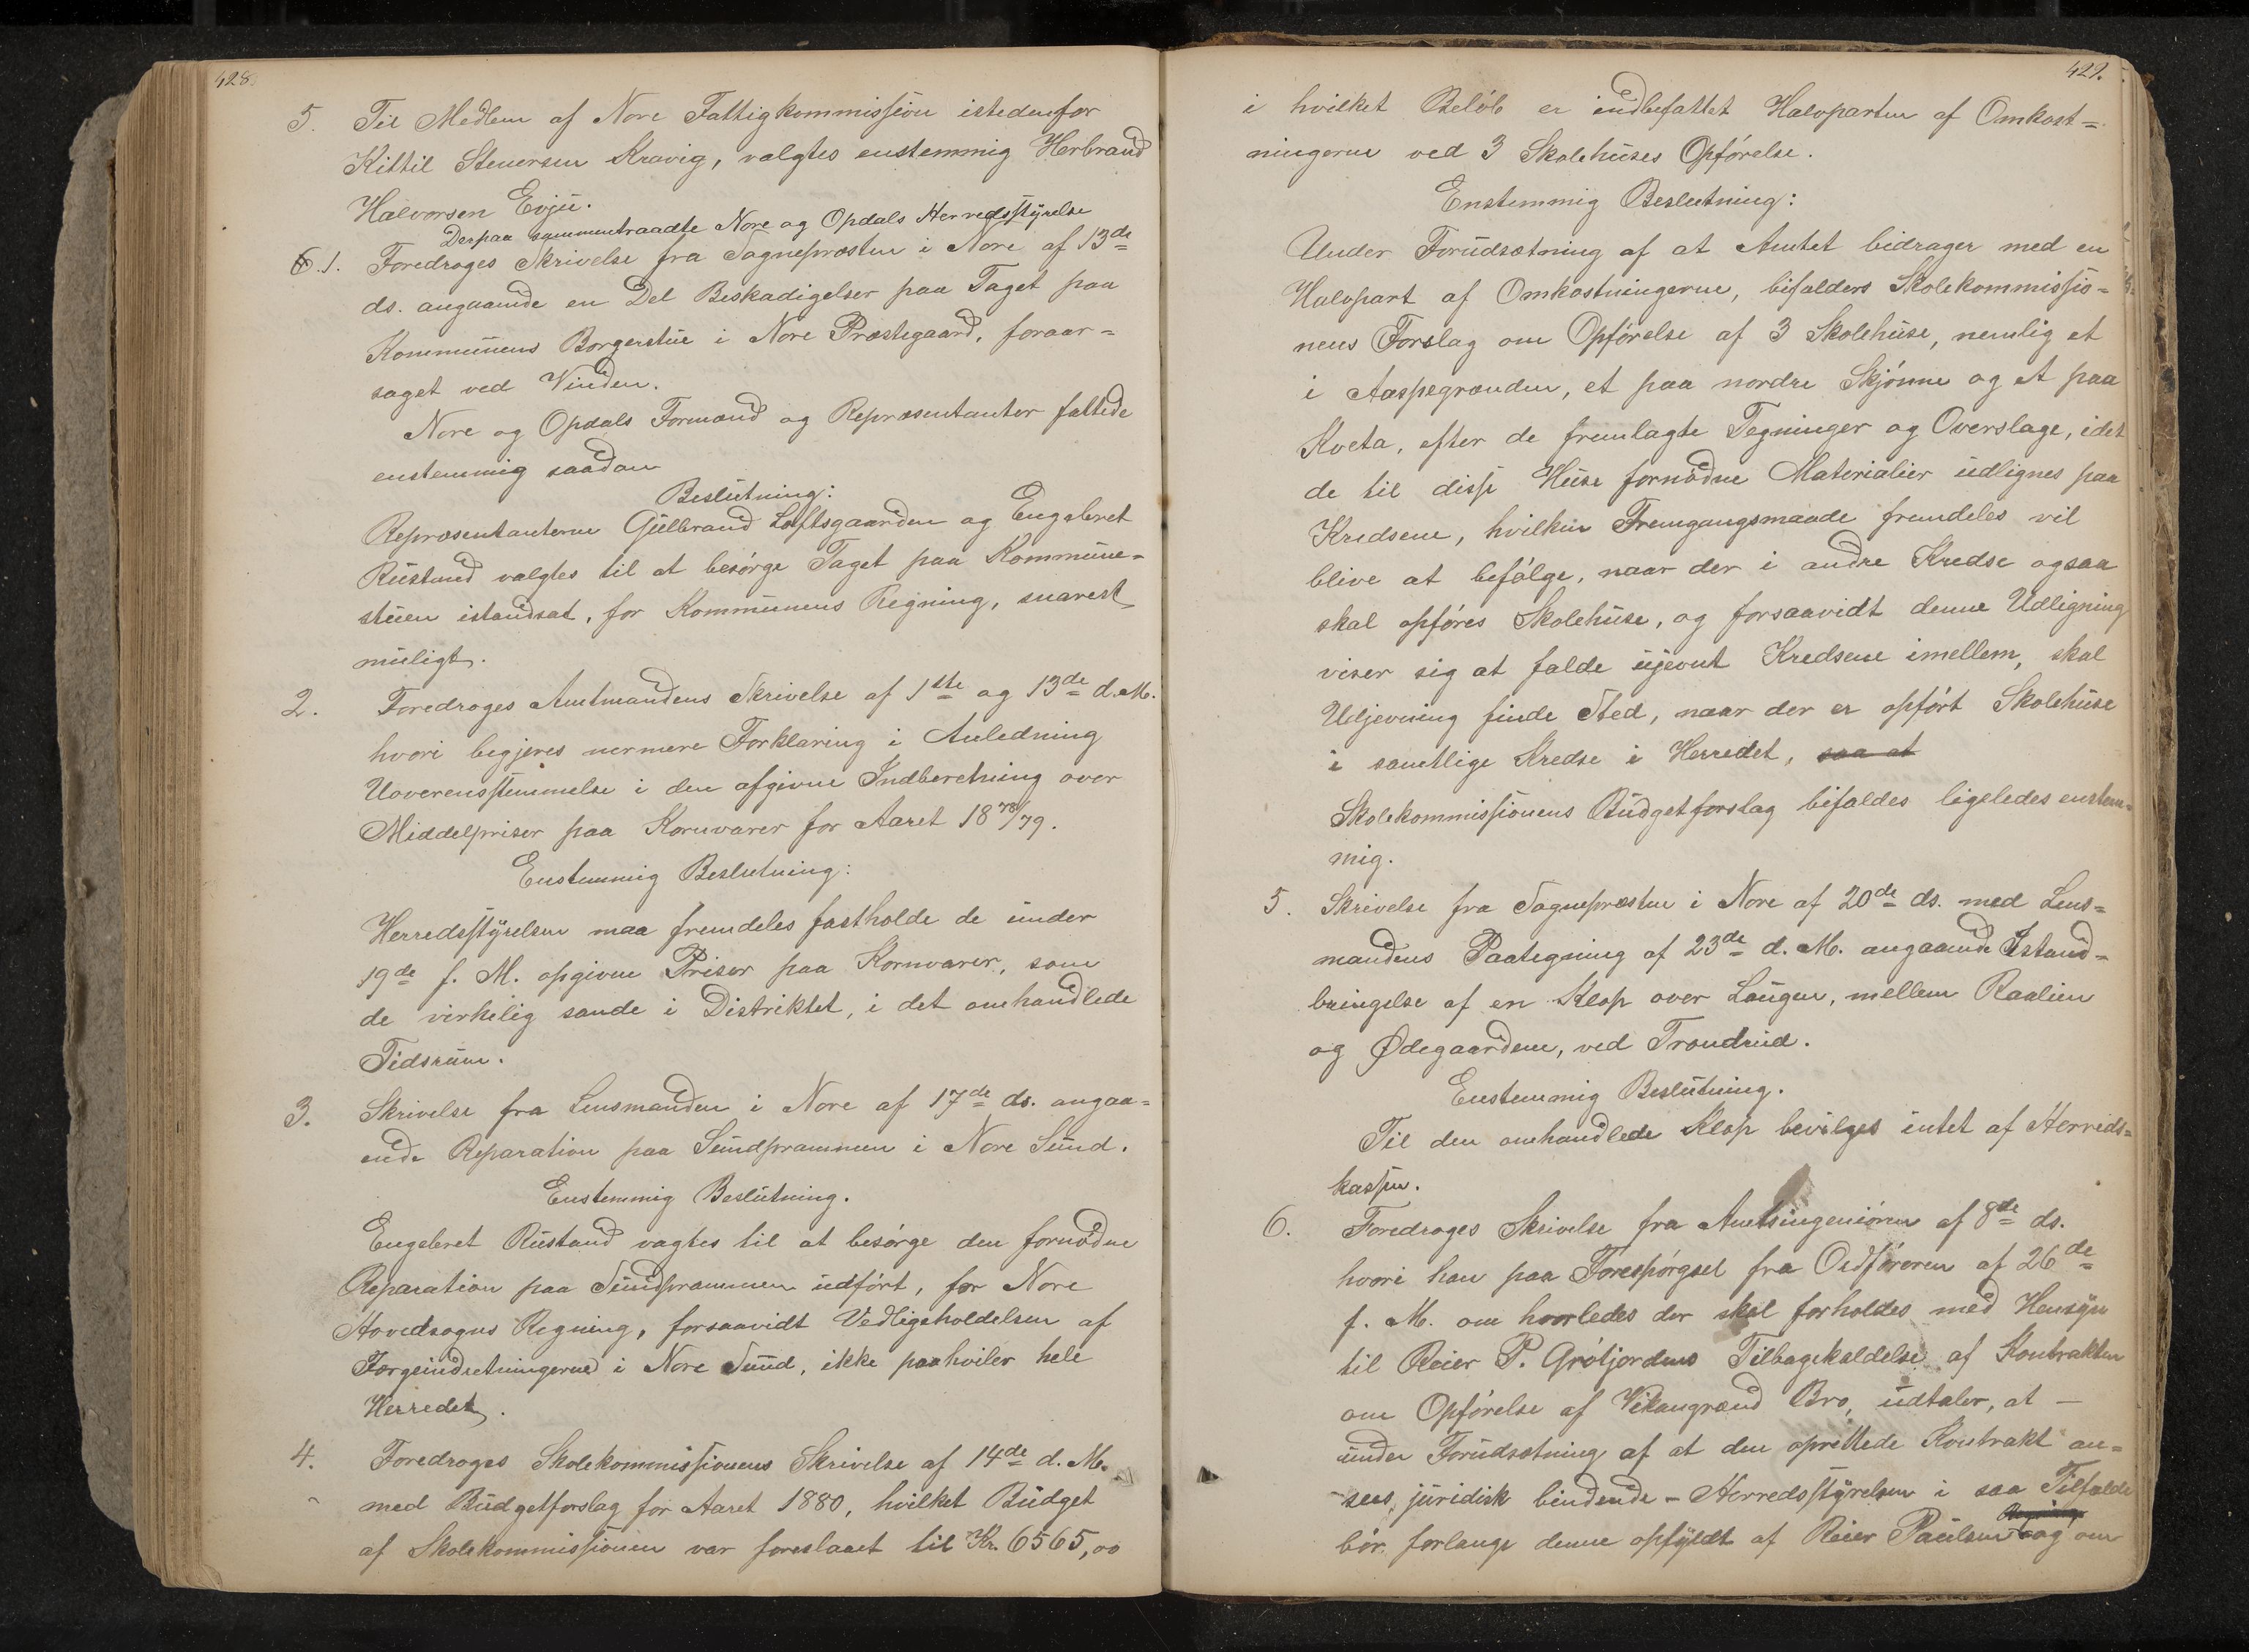 428.
5. Til Medlem af Nore Fattigkommission istedenfor
Kittil Stenersen Kravig, valgtes enstemmig Herbrand
Halvorsen Evju.
Derpaa sammentraadte Nore og Opdals Herredsstyrelse
6. 1. Foredroges Skrivelse fra Sognepræsten i Nore af 13de
ds. angaaende en Del Beskadigelser paa Taget paa
Kommunens Borgerstue i Nore Præstegaard, foraar=
saget ved Vinden.
Nore og Opdals Formænd og Repræsentanter fattede
enstemmig saadan
Beslutning:
Repræsentanterne Gulbrand Loftsgaarden og Engebret
Rustand valgtes til at besørge Taget paa Kommune=
stuen istandsat, for Kommunens Regning, snarest
muligt.
2. Foredroges Amtmandens Skrivelse af 1ste og 13de d. M.
hvori begjeres nermere Forklaring i Anledning
Uoverensstemmelse i den afgivne Indberetning over
Middelpriser paa Kornvarer for Aaret 1878/79.
Enstemmig Beslutning:
Herredsstyrelsen maa fremdeles fastholde de under
19de f. M. opgivne Priser paa Kornvarer, som
de virkelig sande i Distriktet, i det omhandlede
Tidsrum.
3. Skrivelse fra Lensmanden i Nore af 17de ds. angaa=
ende Reparation paa Sundprammen i Nore Sund.
Enstemmig Beslutning.
Engebret Rustand vagtes til at besørge den fornødne
Reparation paa Sundprammen udført, for Nore
Hovedsogns Regning, forsaavidt Vedligeholdelsen af
Færgeindretningerne i Nore Sund, ikke paahviler hele
Herredet.
4. Foredroges Skolekommissionens Skrivelse af 14de d. M.
med Budgetforslag for Aaret 1880, hvilket Budget
af Skolekommissionen var foreslaaet til Kr. 6565,00
429.
i hvilket Beløb er indbefattet Halvparten af Omkost=
ningerne ved 3 Skolehuses Opførelse.
Enstemmig Beslutning:
Under Forudsætning af at Amtet bidrager med en
Halvpart af Omkostningerne, bifalders Skolekommissio=
nens Forslag om Opførelse af 3 Skolehuse, nemlig et
i Aaspegrænden, et paa nordre Skjønne og et paa
Kveta, efter de fremlagte Tegninger og Overslage, idet
de til disse Huse fornødne Materialier udlignes paa
Kredsene, hvilken Fremgangsmaade fremdeles vil
blive at befølge, naar der i andre Kredse ogsaa
skal opføres Skolehuse, og forsaavidt denne Udligning
viser sig at falde ujevnt Kredsene imellem, skal
Udjevning finde Sted, naar der er opført Skolehuse
i samtlige Kredse i Herredet, saa at
Skolekommissionens Budgetforslag bifaldes ligeledes enstem=
mig.
5. Skrivelse fra Sognepræsten i Nore af 20de ds. med Lens=
mandens Paategning af 23de d. M. angaaende Istand=
bringelse af en Klop over Laugen, mellem Raalien
og Ødegaardene, ved Trondrud.
Enstemmig Beslutning.
Til den omhandlede Klop bevilges intet af Herreds=
kassen.
6. Foredroges Skrivelse fra Amtsingeniøren af 8de ds.
hvori han paa Forespørgsel fra Ordføreren af 26de
f. M. om hvorledes der skal forholdes med Hensyn
til Reier P. Grøtjordens Tilbagekaldelse af Kontrakten
om Opførelse af Vikangrænd Bro, udtaler, at —
under Forudsætning af at den oprettede Kontrakt an=
sees juridisk bindende – Herredsstyrelsen i saa Tilfælde
bør forlange denne opfyldt af Reier Paulsen og om